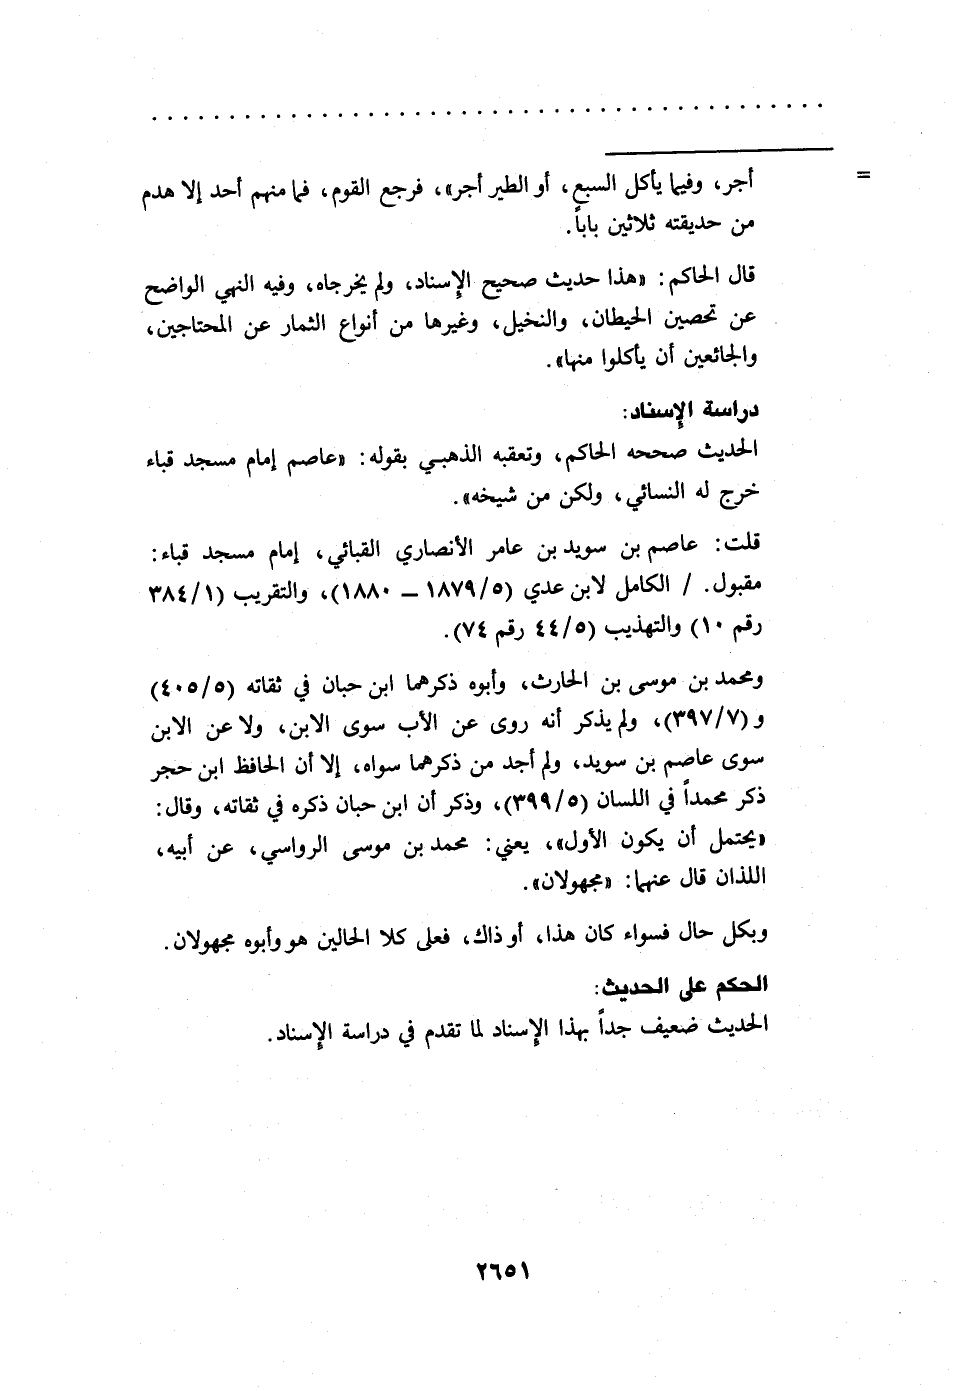 . . . . . . . . . . . . . . . . . . . . . . . . . . . . . . . . . . . . . . . . . . . .
= أجر، وفيما يأكل السبع، أو الطير أجر»، فرجع القوم، فما منهم أحد إلا هدم
من حديقته ثلاثين باباً.
قال الحاكم: «هذا حديث صحيح الإسناد، ولم يخرجاه، وفيه النهي الواضح
عن تحصين الحيطان، والنخيل، وغيرها من أنواع الثمار عن المحتاجين،
والجائعين أن يأكلوا منها».
دراسة الإسناد:
الحديث صححه الحاكم، وتعقبه الذهبي بقوله: «عاصم إمام مسجد قباء
خرج له النسائي، ولكن من شيخه».
قلت: عاصم بن سويد بن عامر الأنصاري القبائي، إمام مسجد قباء:
مقبول. / الكامل لابن عدي (١٨٧٩/٥ ــ ١٨٨٠)، والتقريب (٣٨٤/١
رقم ١٠) والتهذيب (٤٤/٥ رقم ٧٤).
ومحمد بن موسى بن الحارث، وأبوه ذكرهما ابن حبان في ثقاته (٤٠٥/٥)
و (٣٩٧/٧)، ولم يذكر أنه روى عن الأب سوى الابن، ولا عن الابن
سوى عاصم بن سويد، ولم أجد من ذكرهما سواه، إلا أن الحافظ ابن حجر
ذكر محمداً في اللسان (٣٩٩/٥)، وذكر أن ابن حبان ذكره في ثقاته، وقال:
«يحتمل أن يكون الأول»، يعني: محمد بن موسى الرواسي، عن أبيه،
اللذان قال عنهما: «مجهولان».
وبكل حال فسواء كان هذا، أو ذاك، فعلى كلا الحالين هو وأبوه مجهولان.
الحكم على الحديث:
الحديث ضعيف جداً بهذا الإسناد لما تقدم في دراسة الإسناد.
٢٦٥١